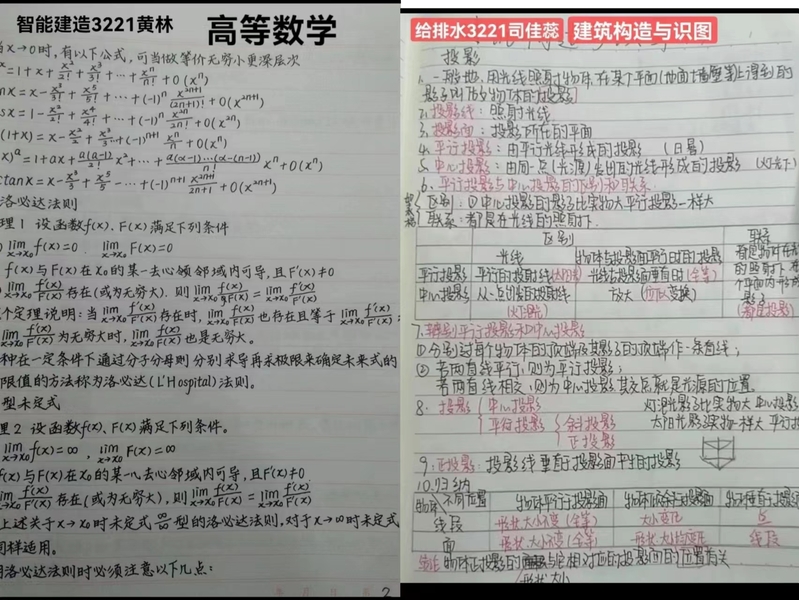 智能建造3221黄林
高等数学
当x→0时,有以下公式,可当做等价无穷小更深层次
=1+x+x²/2!+x³/3!+⋯+xⁿ/n!+O(xⁿ)
nx=x-x³/3!+x⁵/5!+⋯+(-1)ⁿ x²ⁿ⁺¹/(2n+1)!+O(x²ⁿ⁺¹)
sx=1-x²/2!+x⁴/4!+⋯+(-1)ⁿ
(1+x)=x-x²/2+x³/3⋯+(-1)ⁿ⁺¹ xⁿ/n+O(xⁿ)
x)ᵃ=1+ax+a(a-1)/2! x²+⋯+a(a-1)⋯(a-(n-1))/n! xⁿ+O(xⁿ)
ctanx=x-x³/3+x⁵/5-⋯+(-1)ⁿ⁺¹
洛必达法则
理1 设函数f(x)、F(x)满足下列条件
lim x→x₀ f(x)=0 lim x→x₀ F(x)=0
f(x)与F(x)在x₀的某一去心领邻域内可导,且F'(x)≠0
存在(或为无穷大).则 lim x→x₀ f(x)/F(x)=lim x→x₀ f'(x)/F'(x)
个定理说明:当 lim x→x₀ f'(x)/F'(x) 存在时, lim x→x₀ f(x)/F(x) 也存在且等于 lim x→x₀ f'(x)/F'(x)
lim x→x₀ f'(x)/F'(x) 为无穷大时, lim x→x₀ f(x)/F(x) 也是无穷大。
种在一定条件下通过分子分母则分别求导再求极限来确定未来式的
限值的方法称为洛必达(L'Hospital)法则。
型未定式
理2 设函数f(x)、F(x)满足下列条件。
lim x→x₀ f(x)=∞, lim x→x₀ F(x)=∞
f(x)与F(x)在x₀的某一去心邻域内可导,且F'(x)≠0
lim x→x₀ f'(x)/F'(x) 存在(或为无穷大),则 lim x→x₀ f(x)/F(x)=lim x→x₀ f'(x)/F'(x)
上述关于x→x₀时未定式∞/∞型的洛必达法则,对于x→∞时未定式
同样适用。
用洛必达法则时必须注意以下几点:
2
给排水3221司佳蕊
建筑构造与识图
投影
1.一般地,用光线照射物体,在某个平面(地面、墙壁等)上得到的
影子叫做物体的投影
2.投影线:照射光线
3.投影面:投影所在的平面
4.平行投影:由平行光线形成的投影 (日晷)
5.中心投影:由同一点(点光源)发出的光线形成的投影 (灯光下)
6.平行投影与中心投影的区别和联系
区别:①中心投影的影子比实物大平行投影一样大
联系:都是在光线的照射下.
区别 联系
光线 物体与投影面平行时的投影
平行投影 平行的投射线(太阳光) 光线与投影面垂直时(全等)
中心投影 从一点出发的投射线 放大(位似变换)
(灯光)
都是物体在光
的照射下,在
个平面内形成
影子
(都是投影)
7.辨别平行投影和中心投影
①分别过每个物体的顶端及其影子的顶端作一条直线;
②若两直线平行,则为平行投影;
若两直线相交,则为中心投影其交点就是光源的位置.
8.投影 中心投影 灯光影子比实物大 中心投影
平行投影 斜投影 太阳光影子跟实物一样大 平行投
正投影
9.正投影:投影线垂直于投影面平行的投影
10.归纳
物体 不同位置 物体平行于投影面 物体倾斜于投影面 物体垂直于投影面
线段 形状大小不变(全等) 大小变化 点
面 形状大小不变(全等) 形状大小均变化 线段
结论:物体正投影的与它相对应的投影面的位置有关
形状大小